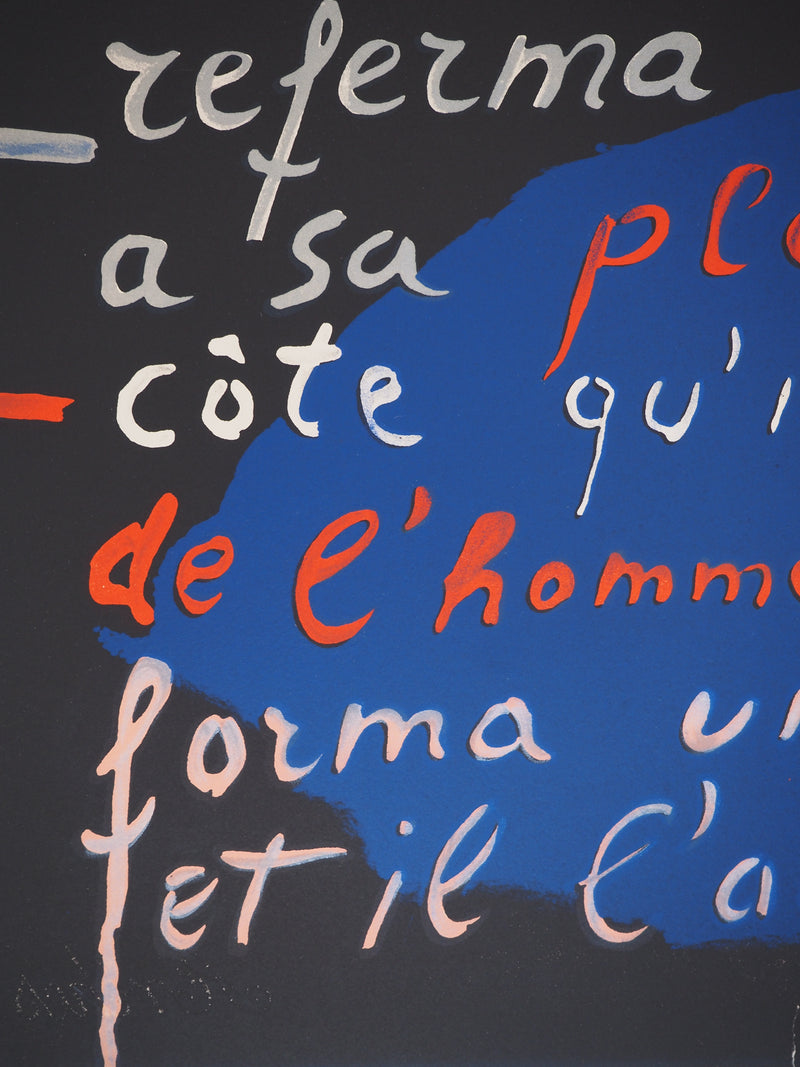 referma
a sa plc
côte qu'i
de l'homme
forma un
et il l'a